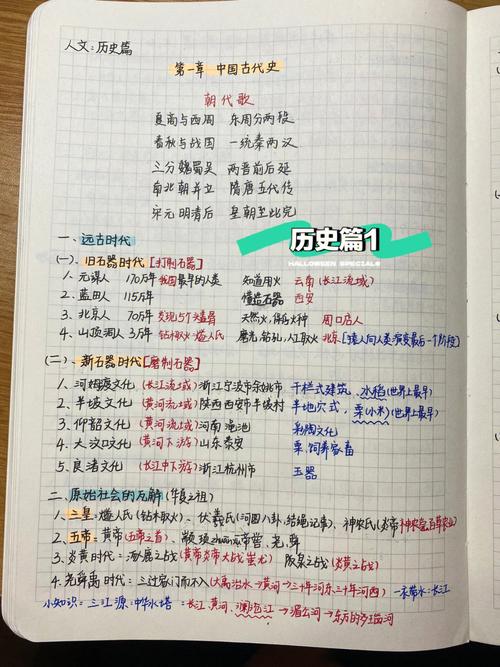 人文：历史篇
第一章 中国古代史
朝代歌
夏商与西周 东周分两段
春秋与战国 一统秦两汉
三分魏蜀吴 两晋前后延
南北朝并立 隋唐五代传
宋元明清后 皇朝至此完
历史篇1
HALLOWEEN SPECIALS
一、远古时代
(一) 旧石器时代[打制石器]
1. 元谋人 170万年 我国最早的人类 知道用火 云南(长江流域)
2. 蓝田人 115万年 懂造石器 西安
3. 北京人 70万年 发现5个头盖骨 天然火,保存火种 周口店人
4. 山顶洞人 3万年 钻木取火 燧人氏 磨光,钻孔,人工取火 北京[猿人向人类演变最后一个阶段]
(二) 新石器时代[磨制石器]
1. 河姆渡文化 (长江流域) 浙江宁波市余姚市 干栏式建筑、水稻(世界上最早)
2. 半坡文化 (黄河流域) 陕西西安市半坡村 半地穴式,粟(小米)(世界上最早)
3. 仰韶文化 (黄河流域) 河南渑池 彩陶文化
4. 大汶口文化 (黄河下游) 山东泰安 粟,饲养家畜
5. 良渚文化 (长江中下游) 浙江杭州市 玉器
二、原始社会的瓦解 (华夏之祖)
1. 三皇: 燧人氏(钻木取火)、伏羲氏(河图八卦,结绳记事)、神农氏(炎帝 神农尝百草农业)
2. 五帝: 黄帝(五帝之首)、颛顼zhuān xū 帝喾,尧,舜
3. 炎黄时代: 涿鹿之战(黄帝炎帝大战蚩尤) 阪泉之战(炎黄之战)
4. 尧舜禹时代: 三过家门而不入(大禹治水→黄河→三十年河东三十年河西) 一衣带水:长江
小知识: 三江源:中华水塔: 长江 黄河 澜沧江→湄公河→东方的多瑙河